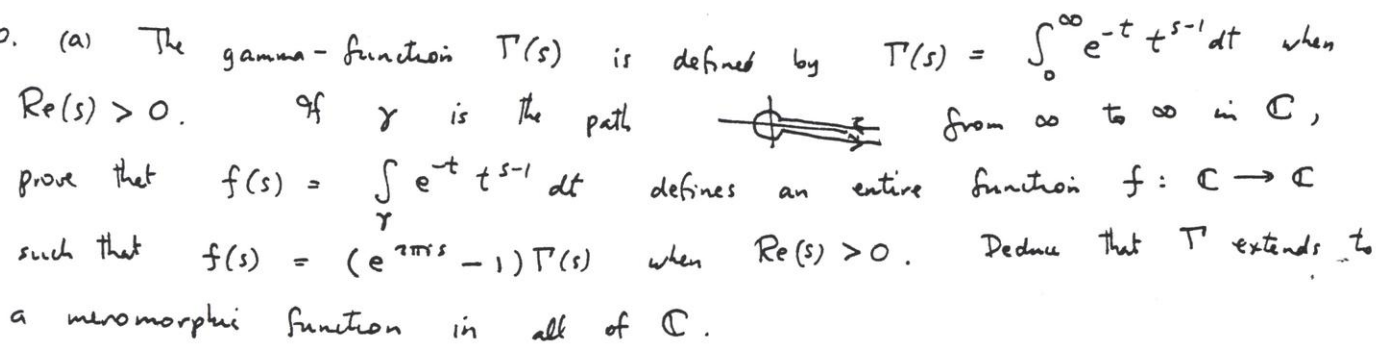 (a) The gamma-function Γ(s) is defined by Γ(s) = ∫₀^∞ e^{-t} t^{s-1} dt when
Re(s) > 0. If γ is the path from ∞ to ∞ in ℂ,
prove that f(s) = ∫_γ e^{-t} t^{s-1} dt defines an entire function f : ℂ → ℂ
such that f(s) = (e^{2πis} - 1) Γ(s) when Re(s) > 0. Deduce that Γ extends to
a meromorphic function in all of ℂ.